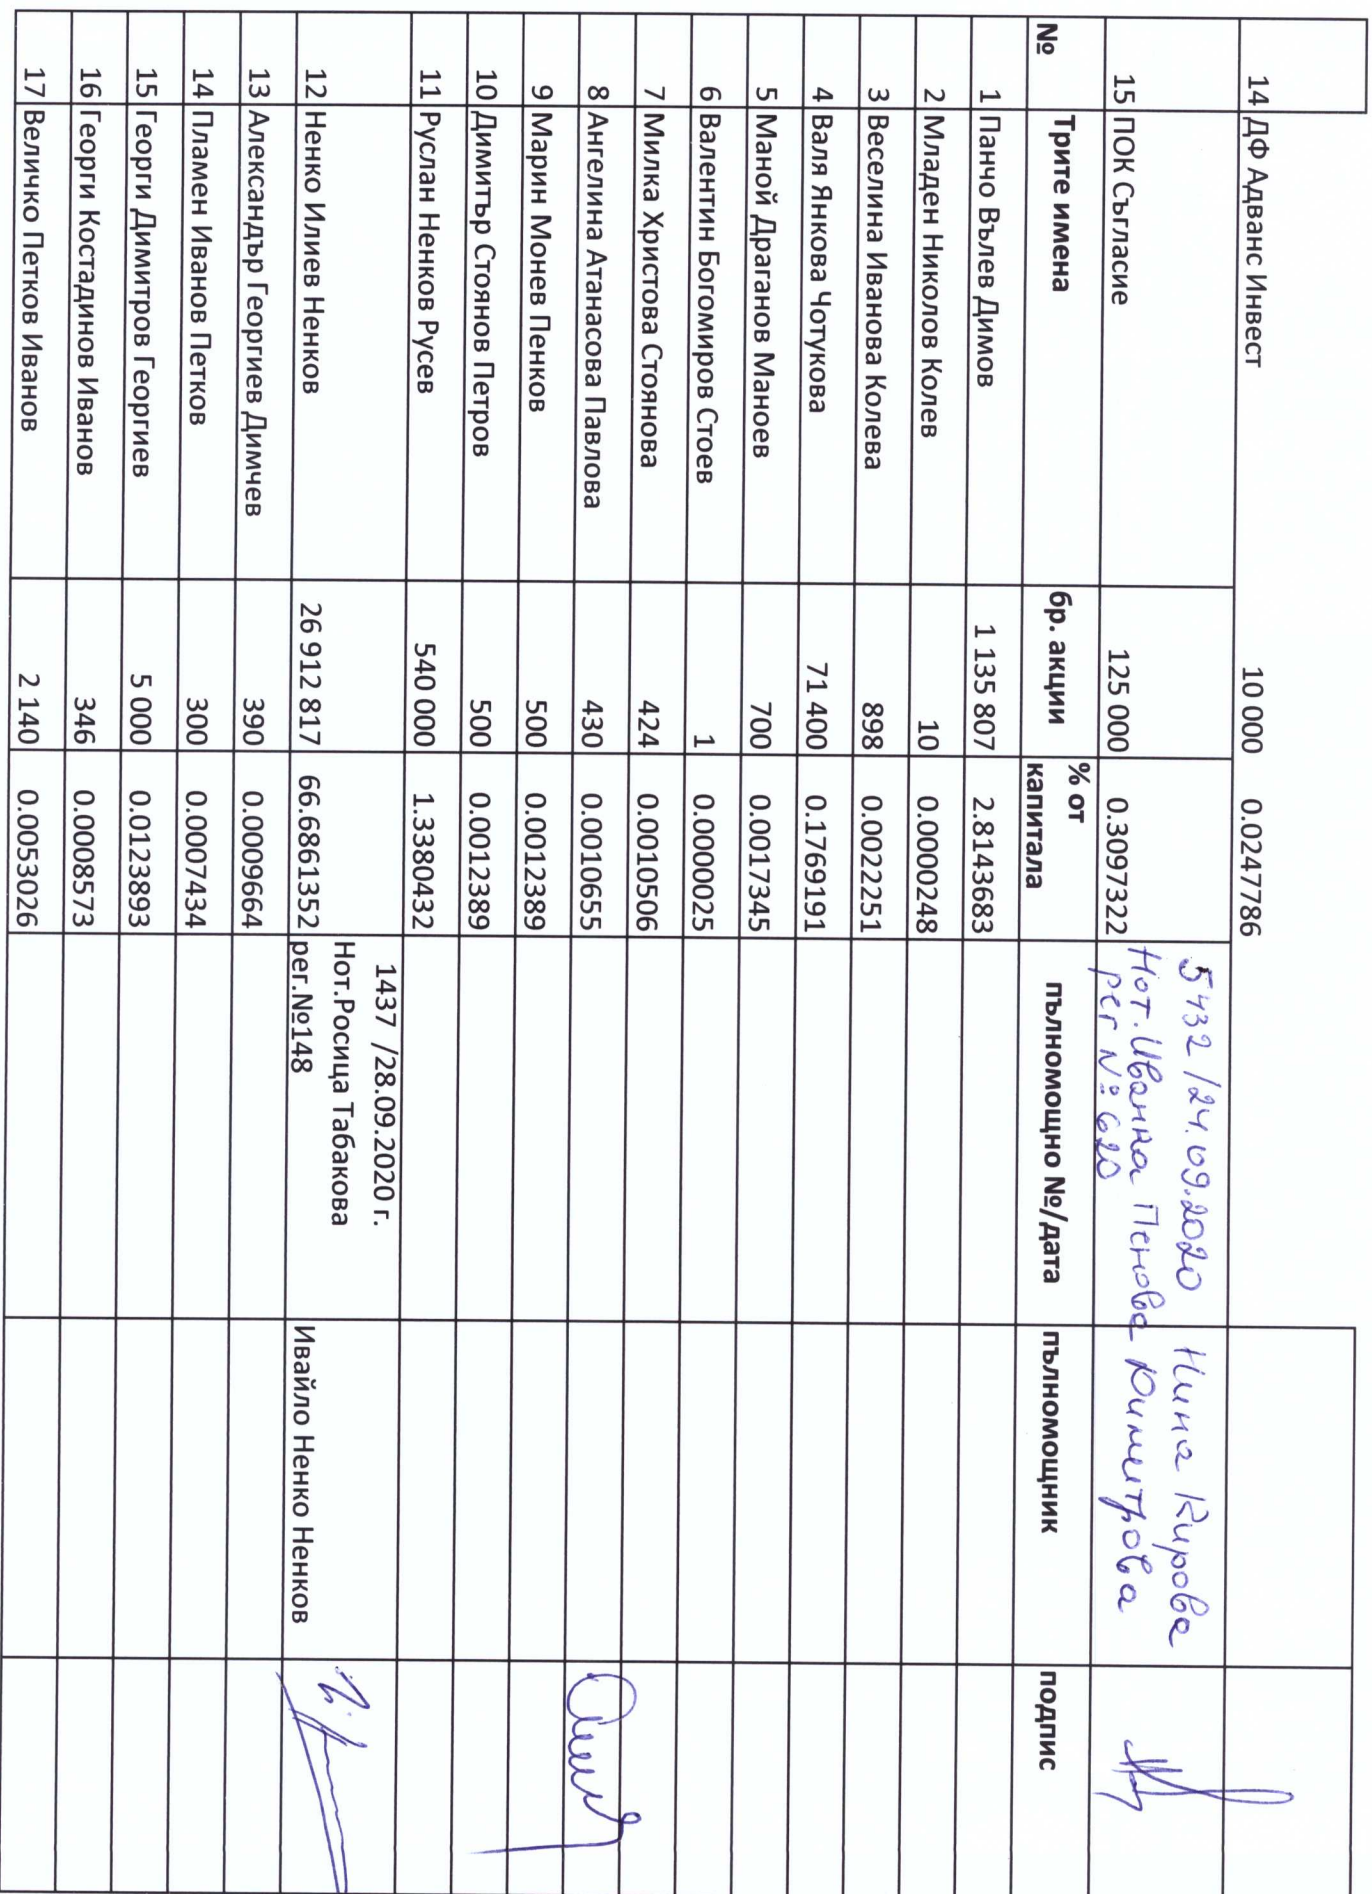 14 ДФ Адванс Инвест 10 000 0.0247786
15 ПОК Съгласие 125 000 0.3097322 5432/24.09.2020 Нот. Иванка Пенова рег №620 Нина Кирова Димитрова
№ Трите имена бр. акции % от капитала пълномощно №/дата пълномощник подпис
1 Панчо Вълев Димов 1 135 807 2.8143683
2 Младен Николов Колев 10 0.0000248
3 Веселина Иванова Колева 898 0.0022251
4 Валя Янкова Чотукова 71 400 0.1769191
5 Маной Драганов Маноев 700 0.0017345
6 Валентин Богомиров Стоев 1 0.0000025
7 Милка Христова Стоянова 424 0.0010506
8 Ангелина Атанасова Павлова 430 0.0010655
9 Марин Монев Пенков 500 0.0012389
10 Димитър Стоянов Петров 500 0.0012389
11 Руслан Ненков Русев 540 000 1.3380432
12 Ненко Илиев Ненков 26 912 817 66.6861352 1437 /28.09.2020 г. Нот.Росица Табакова рег.№148 Ивайло Ненко Ненков
13 Александър Георгиев Димчев 390 0.0009664
14 Пламен Иванов Петков 300 0.0007434
15 Георги Димитров Георгиев 5 000 0.0123893
16 Георги Костадинов Иванов 346 0.0008573
17 Величко Петков Иванов 2 140 0.0053026